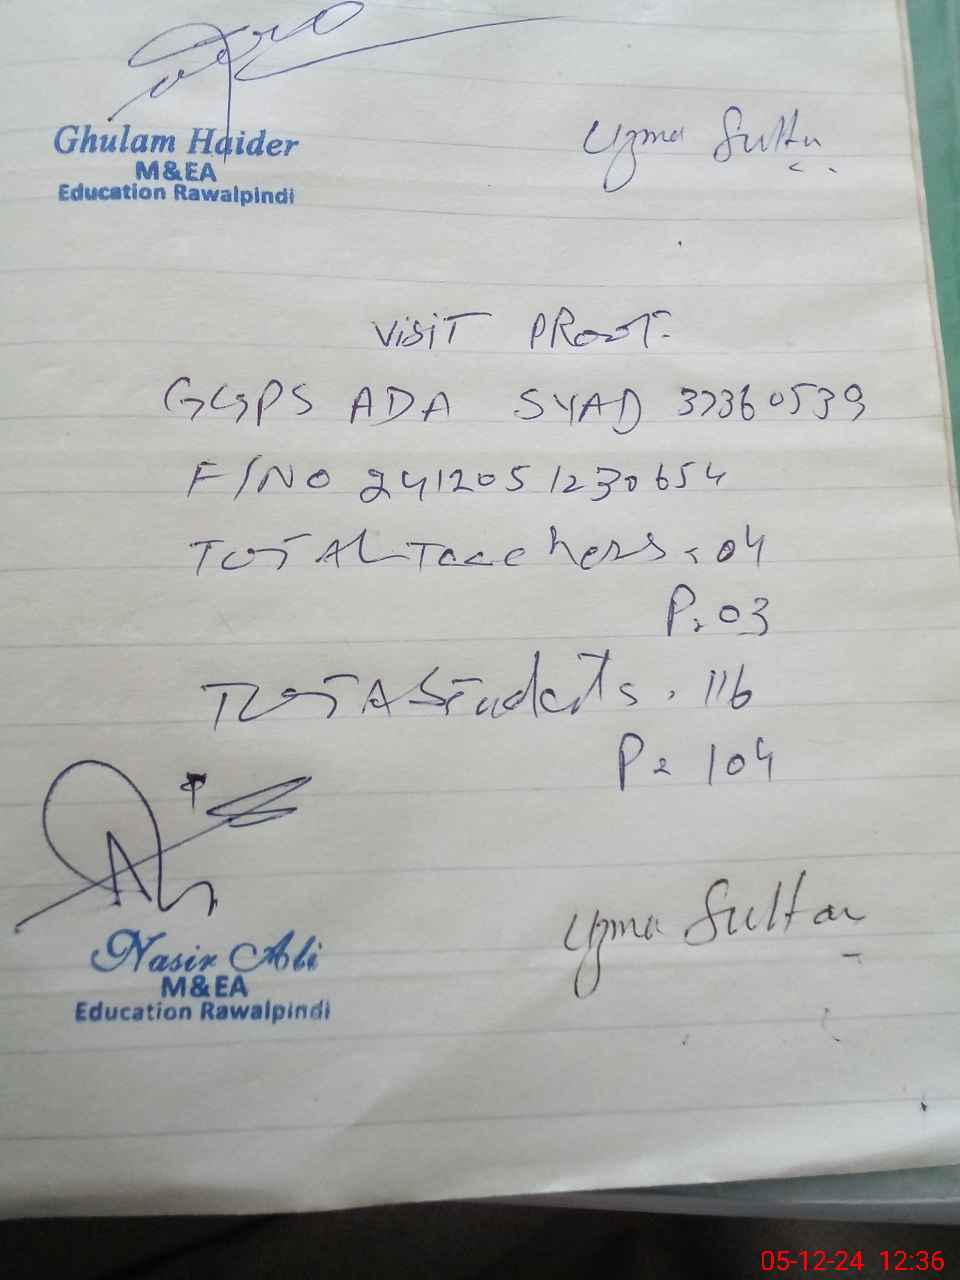 Ghulam Haider
M&EA
Education Rawalpindi
Uzma Sultan
VISIT PROOF
GGPS ADA SYAD 37360539
F/NO 2412051230654
TOTAL Teachers = 04
P = 03
TOTAL Students = 116
P = 104
Nasir Ali
M&EA
Education Rawalpindi
Uzma Sultan
05-12-24 12:36